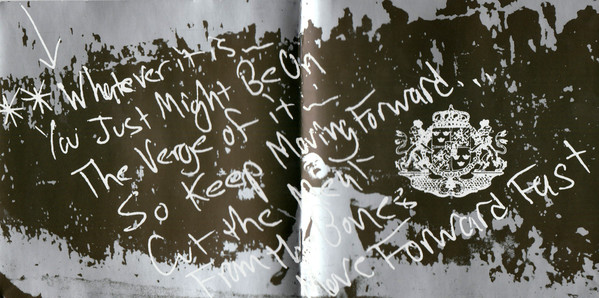 ** Whatever it is –
You Just Might Be On
The Verge of it –
So Keep Moving Forward...
Cut the Meat
From the Bones
Move Forward Fast